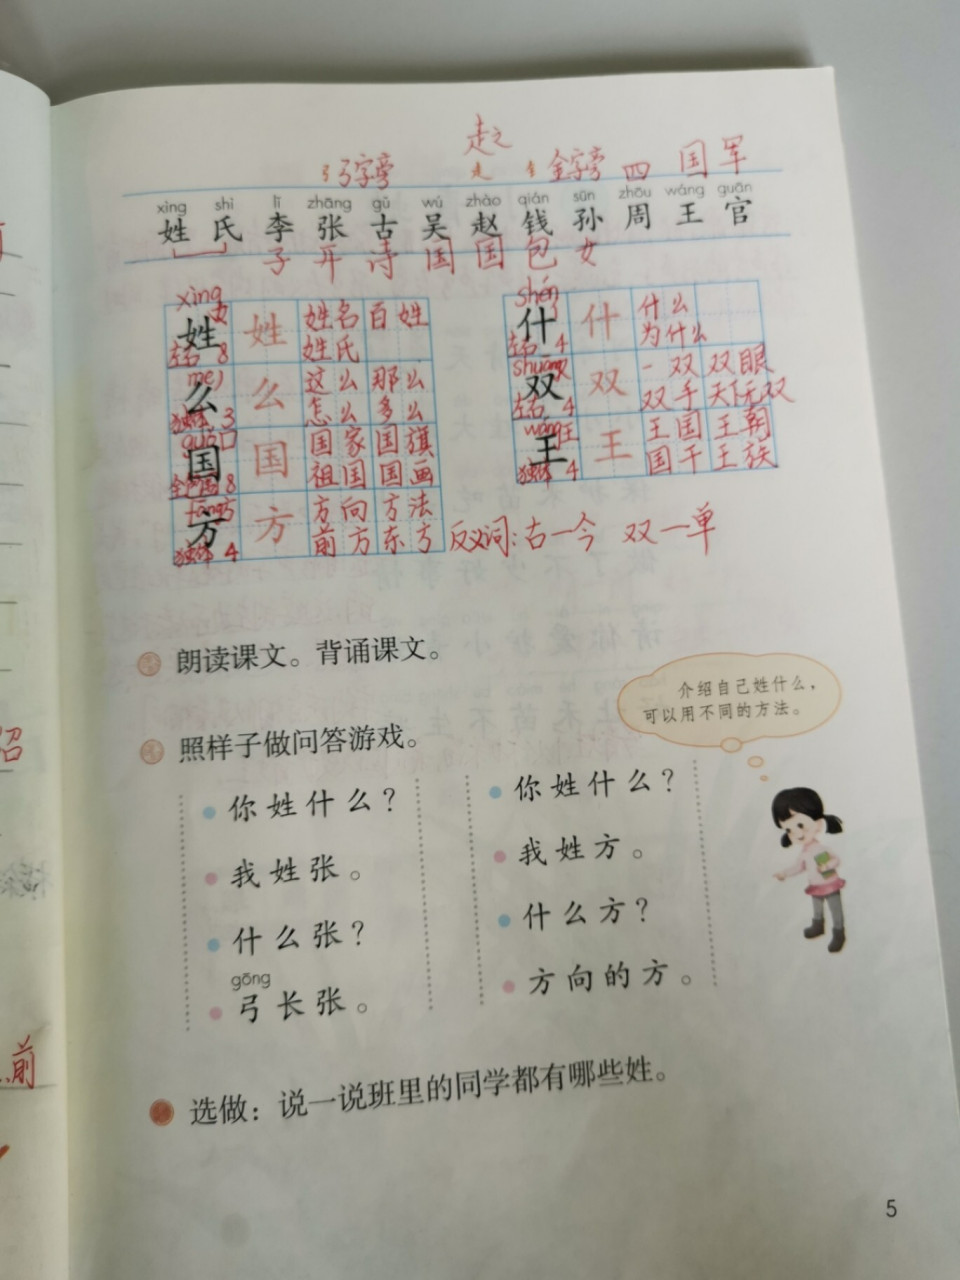 赵
弓字旁 走 钅 金字旁 四 国 军
xìng shì lǐ zhāng gǔ wú zhào qián sūn zhōu wáng guān
姓 氏 李 张 古 吴 赵 钱 孙 周 王 官
子 开 诗 国 国 包 女
xìng 女
姓 姓 姓名 百姓
左右 8 姓氏
me
么 么 这么 那么
独体 3 怎么 多么
guó 囗
国 国 国家 国旗
全包围 8 祖国 国画
fāng 方
方 方 方向 方法
独体 4 前方 东方
shén
什 什 什么
左右 4 为什么
shuāng 又
双 双 一双 双眼
左右 4 双手 天下无双
wáng 王
王 王 王国 王朝
独体 4 国王 王族
反义词：古—今 双—单
朗读课文。背诵课文。
照样子做问答游戏。
介绍自己姓什么，
可以用不同的方法。
你姓什么？
我姓张。
什么张？
gōng
弓长张。
你姓什么？
我姓方。
什么方？
方向的方。
选做：说一说班里的同学都有哪些姓。
5
绍
前